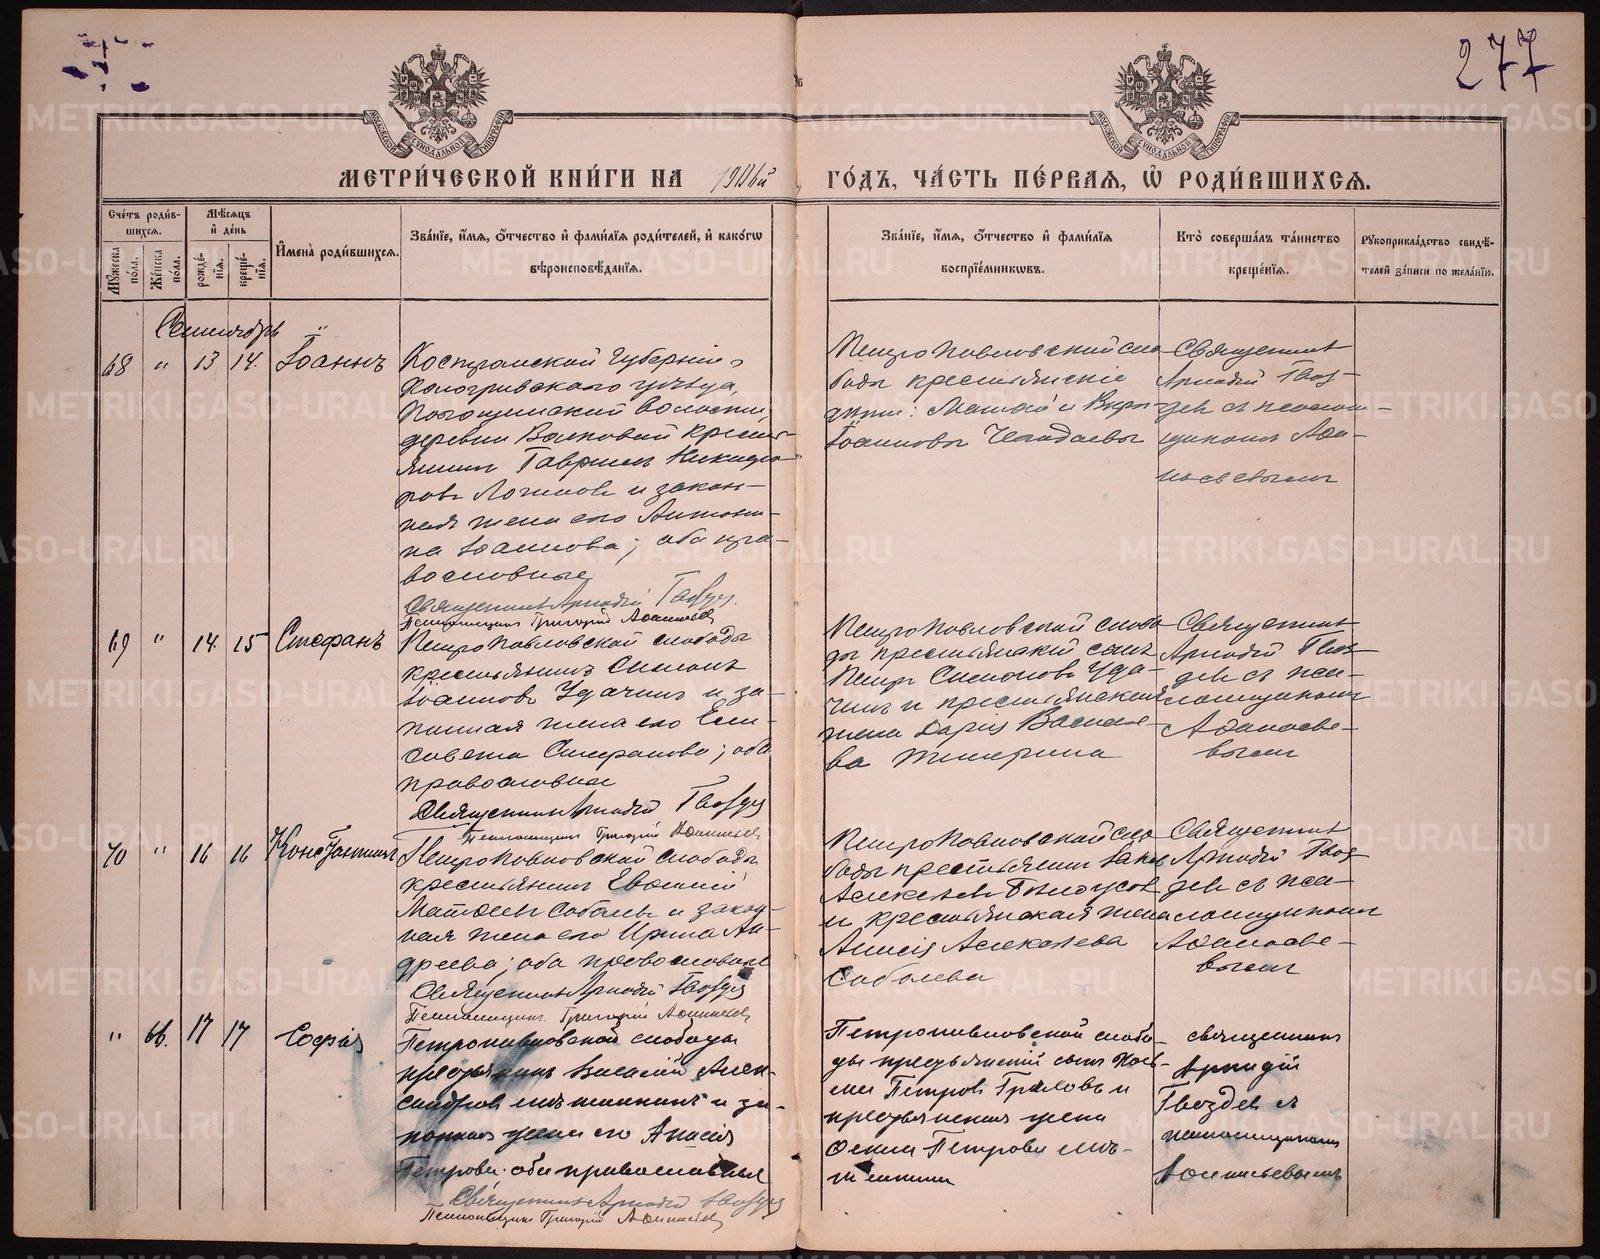 277
МЕТРИ́ЧЕСКОЙ КНИ́ГИ НА 1906й ГО́ДЪ, ЧА́СТЬ ПЕ́РВАѦ, Ѡ҆ РОДИ́ВШИХСѦ.
Сче́тъ роди́вшихсѧ.
Мꙋ́жеска по́ла.
Же́нска по́ла.
Мѣ́сѧцъ и҆ де́нь
рожде́нїѧ.
креще́нїѧ.
И҆мена̀ роди́вшихсѧ.
Зва́нїе, и҆́мѧ, ѻ҆́тчество и҆ фами́лїѧ роди́телей, и҆ како́гѡ
вѣроисповѣ́данїѧ.
Зва́нїе, и҆́мѧ, ѻ҆́тчество и҆ фами́лїѧ
воспрїе́мникѡвъ.
Кто̀ соверша́лъ та́инство
креще́нїѧ.
Рꙋкоприкла́дство свидѣ́-
телей за́писи по жела́нїю.
Сентябрь
68 " 13 14. Іоаннъ
Костромской губерніи,
Кологривскаго уѣзда,
волости,
деревни кресть-
янинъ Гавріилъ Никифо-
ровъ Логиновъ и закон-
ная жена его Антони-
на Іоаннова; оба пра-
вославные
Священникъ Аркадій Гвоздев
Псаломщикъ Григорій Афанасьев
Петропавловской сло-
боды крестьянскіе
дѣти: Матѳей и Вѣра
Іоанновы
Священникъ
Аркадій Гвоз-
девъ съ псалом-
щикомъ Афа-
насьевымъ
69 " 14. 15 Стефанъ
Петропавловской слободы
крестьянинъ Симеонъ
Іоанновъ Удачинъ и за-
конная жена его Ели-
савета Стефанова; оба
православные
Священникъ Аркадій Гвоздев
Псаломщикъ Григорій Афанасьев
Петропавловской слобо-
ды крестьянскій сынъ
Петръ Симеоновъ Уда-
чинъ и крестьянская
жена Дарія Василье-
ва
Священникъ
Аркадій Гвоз-
девъ съ пса-
ломщикомъ
Афанасье-
вымъ
70 " 16 16 Константинъ
Петропавловской слободы
крестьянинъ Евѳимій
Матѳеевъ Соболевъ и закон-
ная жена его Ирина Ан-
дреева; оба православные
Священникъ Аркадій Гвоздев
Псаломщикъ Григорій Афанасьев
Петропавловской сло-
боды крестьянинъ Іаковъ
Алексѣевъ Бѣлоусовъ
и крестьянская жена
Анисія Алексѣева
Соболева
Священникъ
Аркадій Гвоз-
девъ съ пса-
ломщикомъ
Афанасье-
вымъ
" 66. 17 17 Софія
Петропавловской слободы
крестьянинъ Василій Алек-
сандровъ и за-
конная жена его Анисія
Петрова. оба православныя
Священникъ Аркадій Гвоздев
Псаломщикъ Григорій Афанасьев
Петропавловской слобо-
ды крестьянскій сынъ Кось-
ма Петровъ и
крестьянская жена
Петрова
священникъ
Аркадій
Гвоздевъ съ
псаломщикомъ
Афанасьевымъ
METRIKI.GASO-URAL.RU